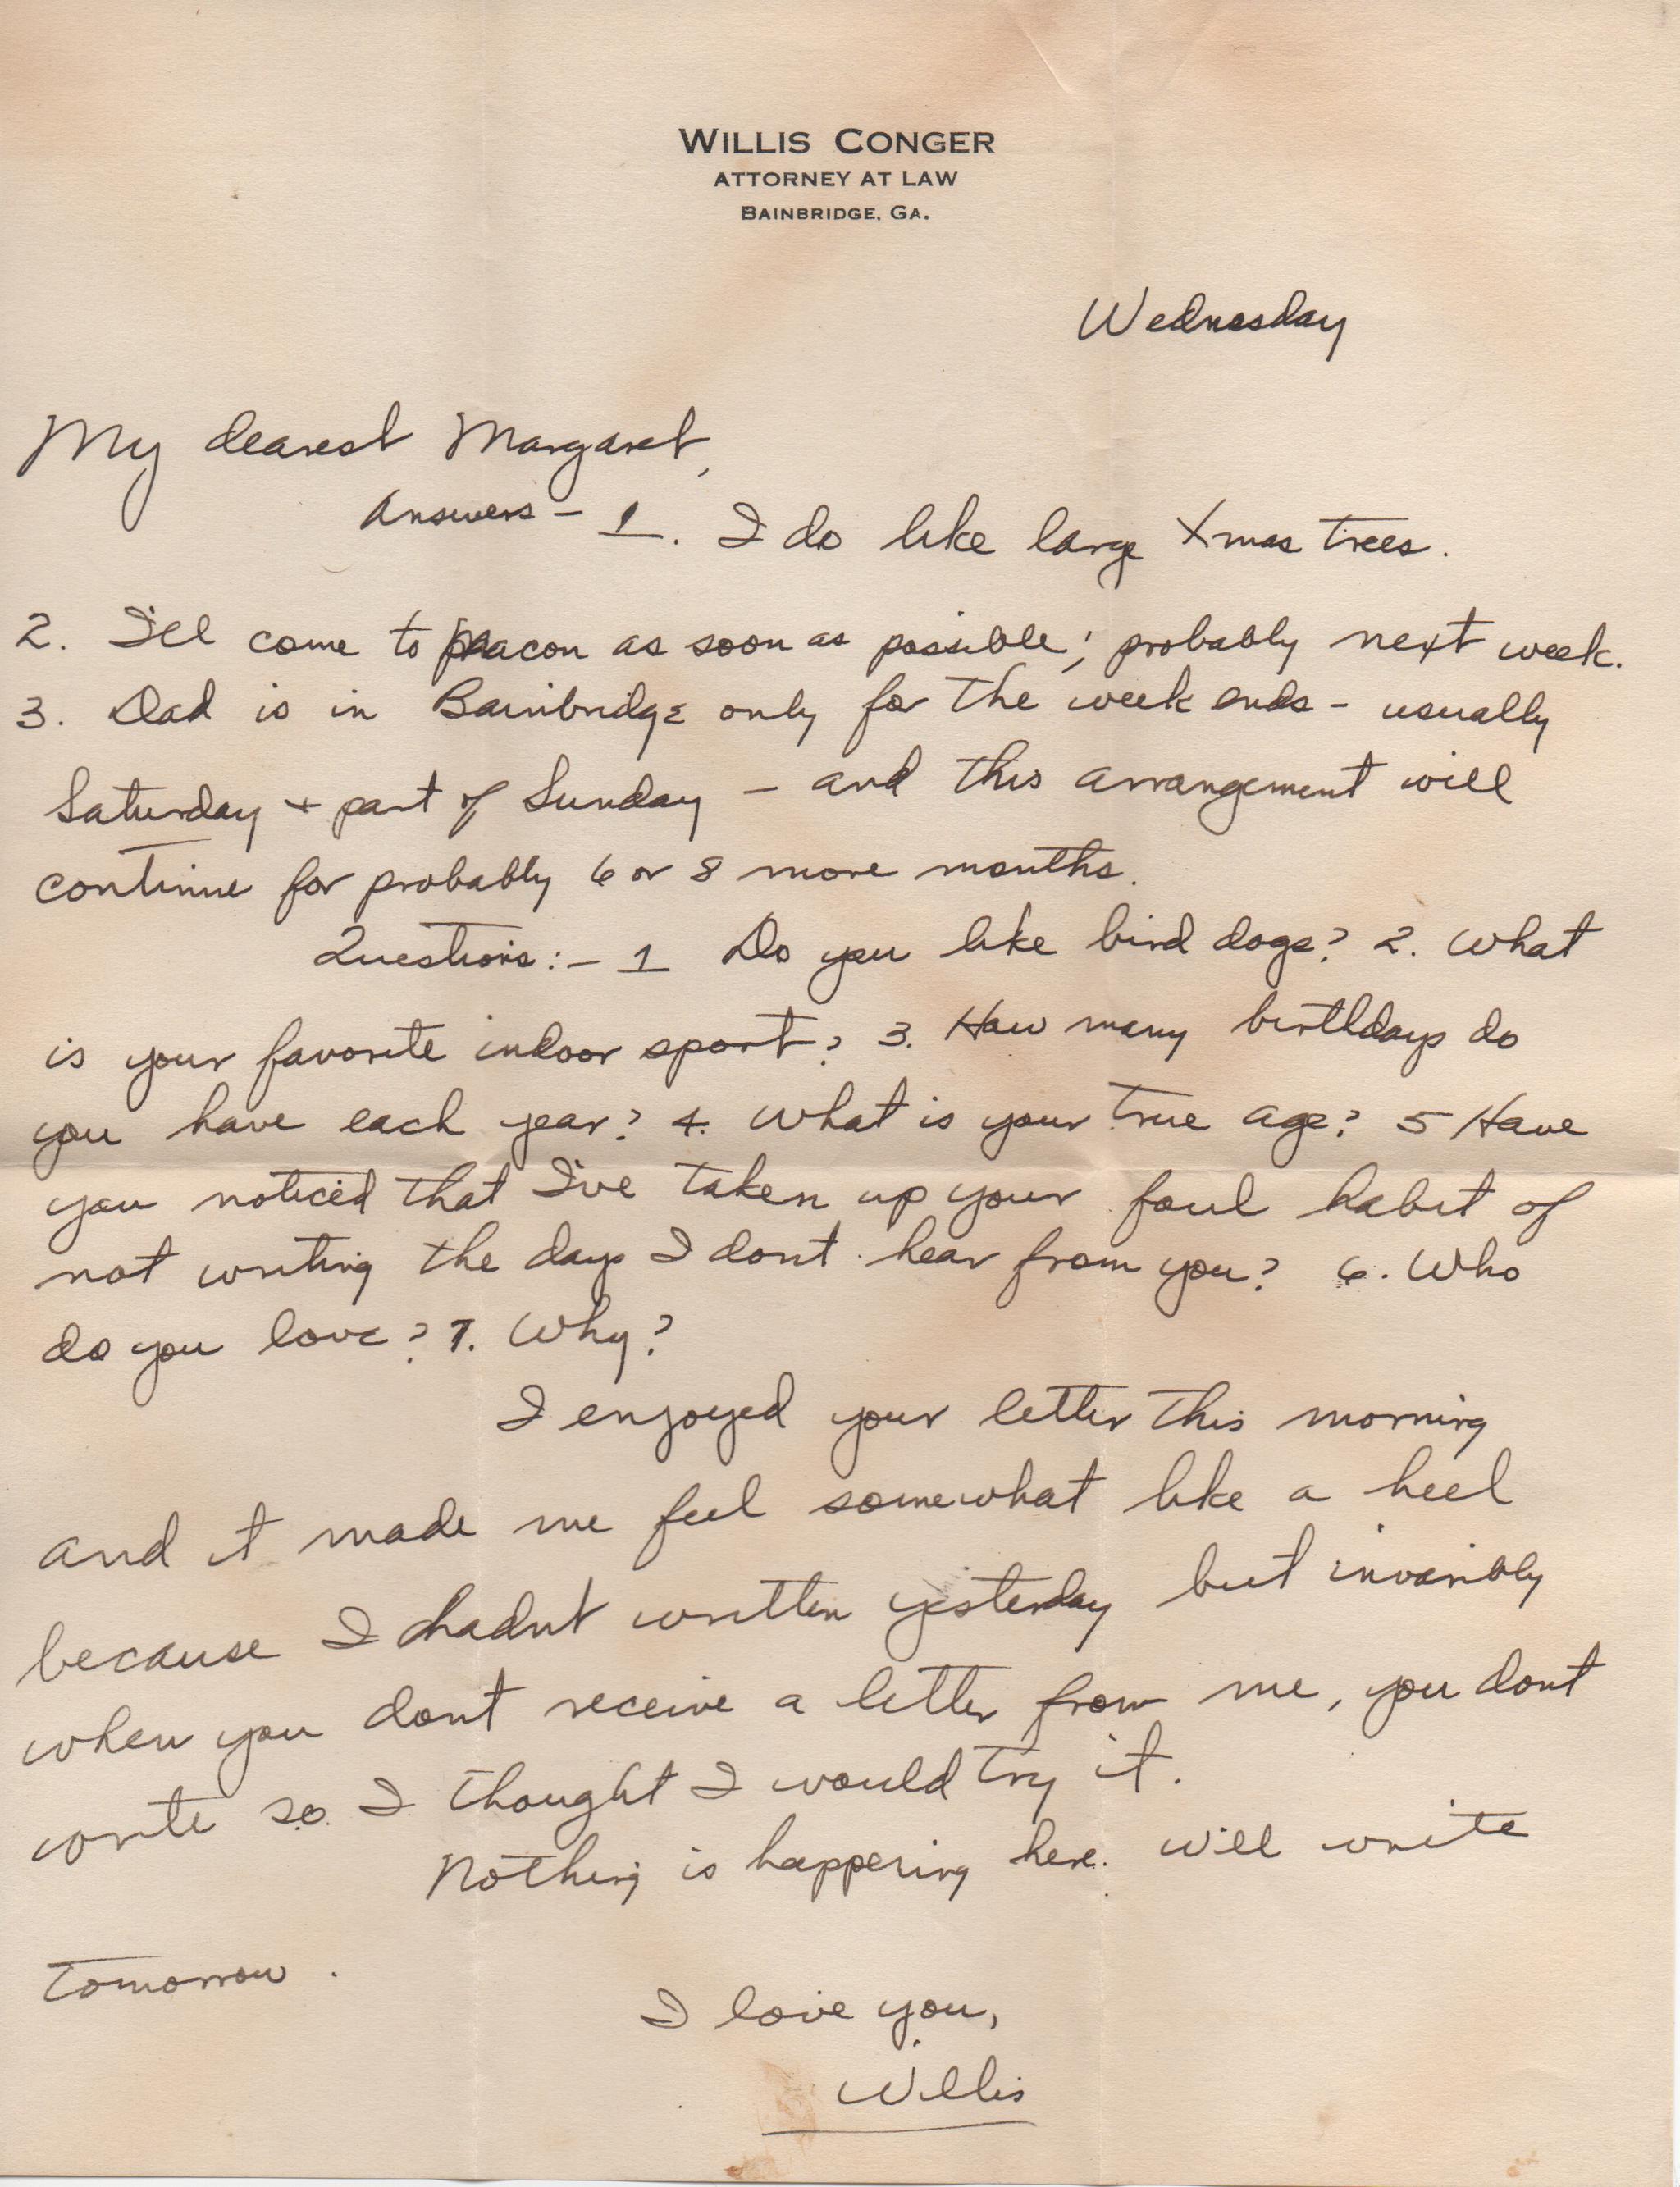 WILLIS CONGER
ATTORNEY AT LAW
BAINBRIDGE, GA.
Wednesday
My dearest Margaret,
Answers – 1. I do like large Xmas trees.
2. I'll come to Macon as soon as possible; probably next week.
3. Dad is in Bainbridge only for the week ends – usually
Saturday + part of Sunday – and this arrangement will
continue for probably 6 or 8 more months.
Questions: – 1 Do you like bird dogs? 2. What
is your favorite indoor sport? 3. How many birthdays do
you have each year? 4. What is your true age? 5 Have
you noticed that I've taken up your foul habit of
not writing the days I dont hear from you? 6. Who
do you love? 7. Why?
I enjoyed your letter this morning
and it made me feel somewhat like a heel
because I hadnt written yesterday but invaribly
when you dont receive a letter from me, you dont
write so I thought I would try it.
Nothing is happening here. Will write
tomorrow.
I love you,
Willis